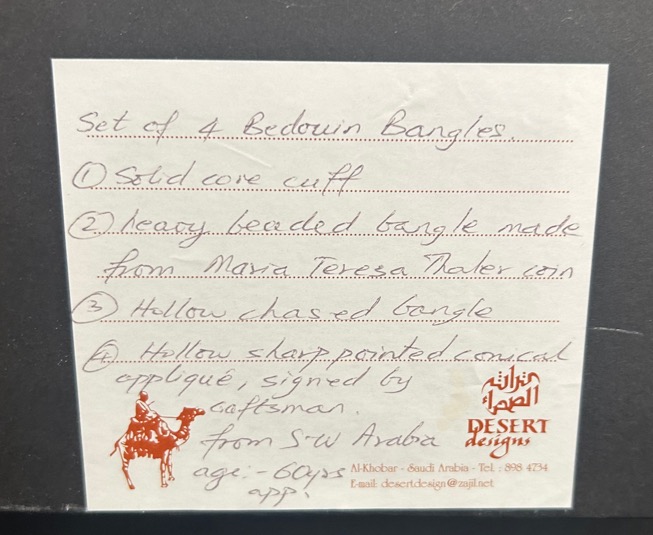 Set of 4 Bedouin Bangles.
① Solid core cuff
② heavy beaded bangle made
from Maria Teresa Thaler coin
③ Hollow chased bangle
④ Hollow sharp pointed conical
appliqué, signed by
caftsman.
from S-W Arabia
age:- 60yrs
app.
تراث
الصحراء
DESERT
designs
Al-Khobar - Saudi Arabia - Tel. : 898 4734
E-mail: desertdesign@zajil.net